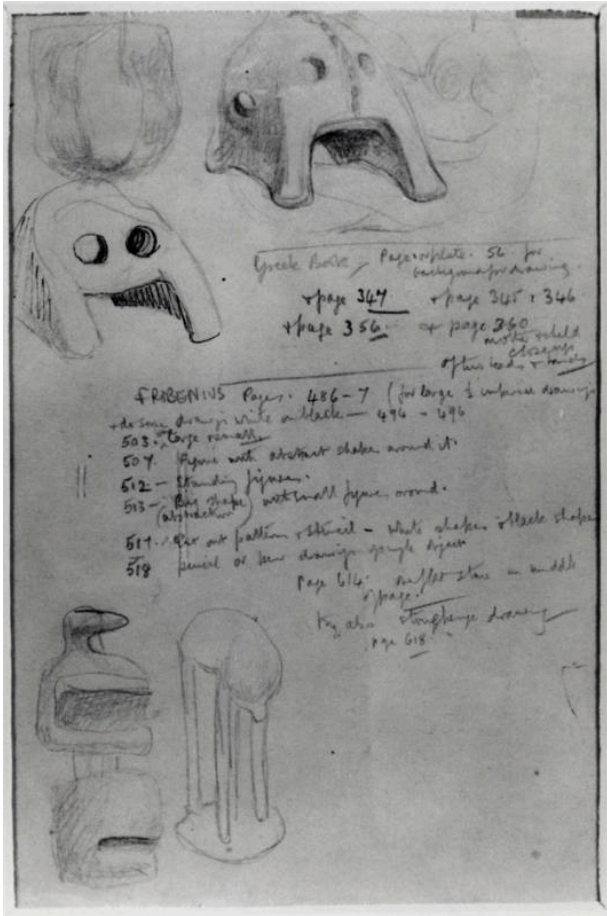 Greek Book, Page or plate. 56 for
background for drawing.
+ page 347 + page 345 + 346
+ page 356 + page 360
mother + child
close up
of heads + hands
FROBENIUS Pages. 486-7 (for large &
+ do some drawings white on black — 494 - 496
503. Large + small
507. Figure with abstract shapes around it.
512 — Standing figures.
513 — Big shape
(abstraction) with small figures around.
517. Cut out pattern + stencil — white shapes + black shapes
518 pencil or pen drawings single object
Page 614. in middle
of page.
Try also stonehenge drawing
page 618.